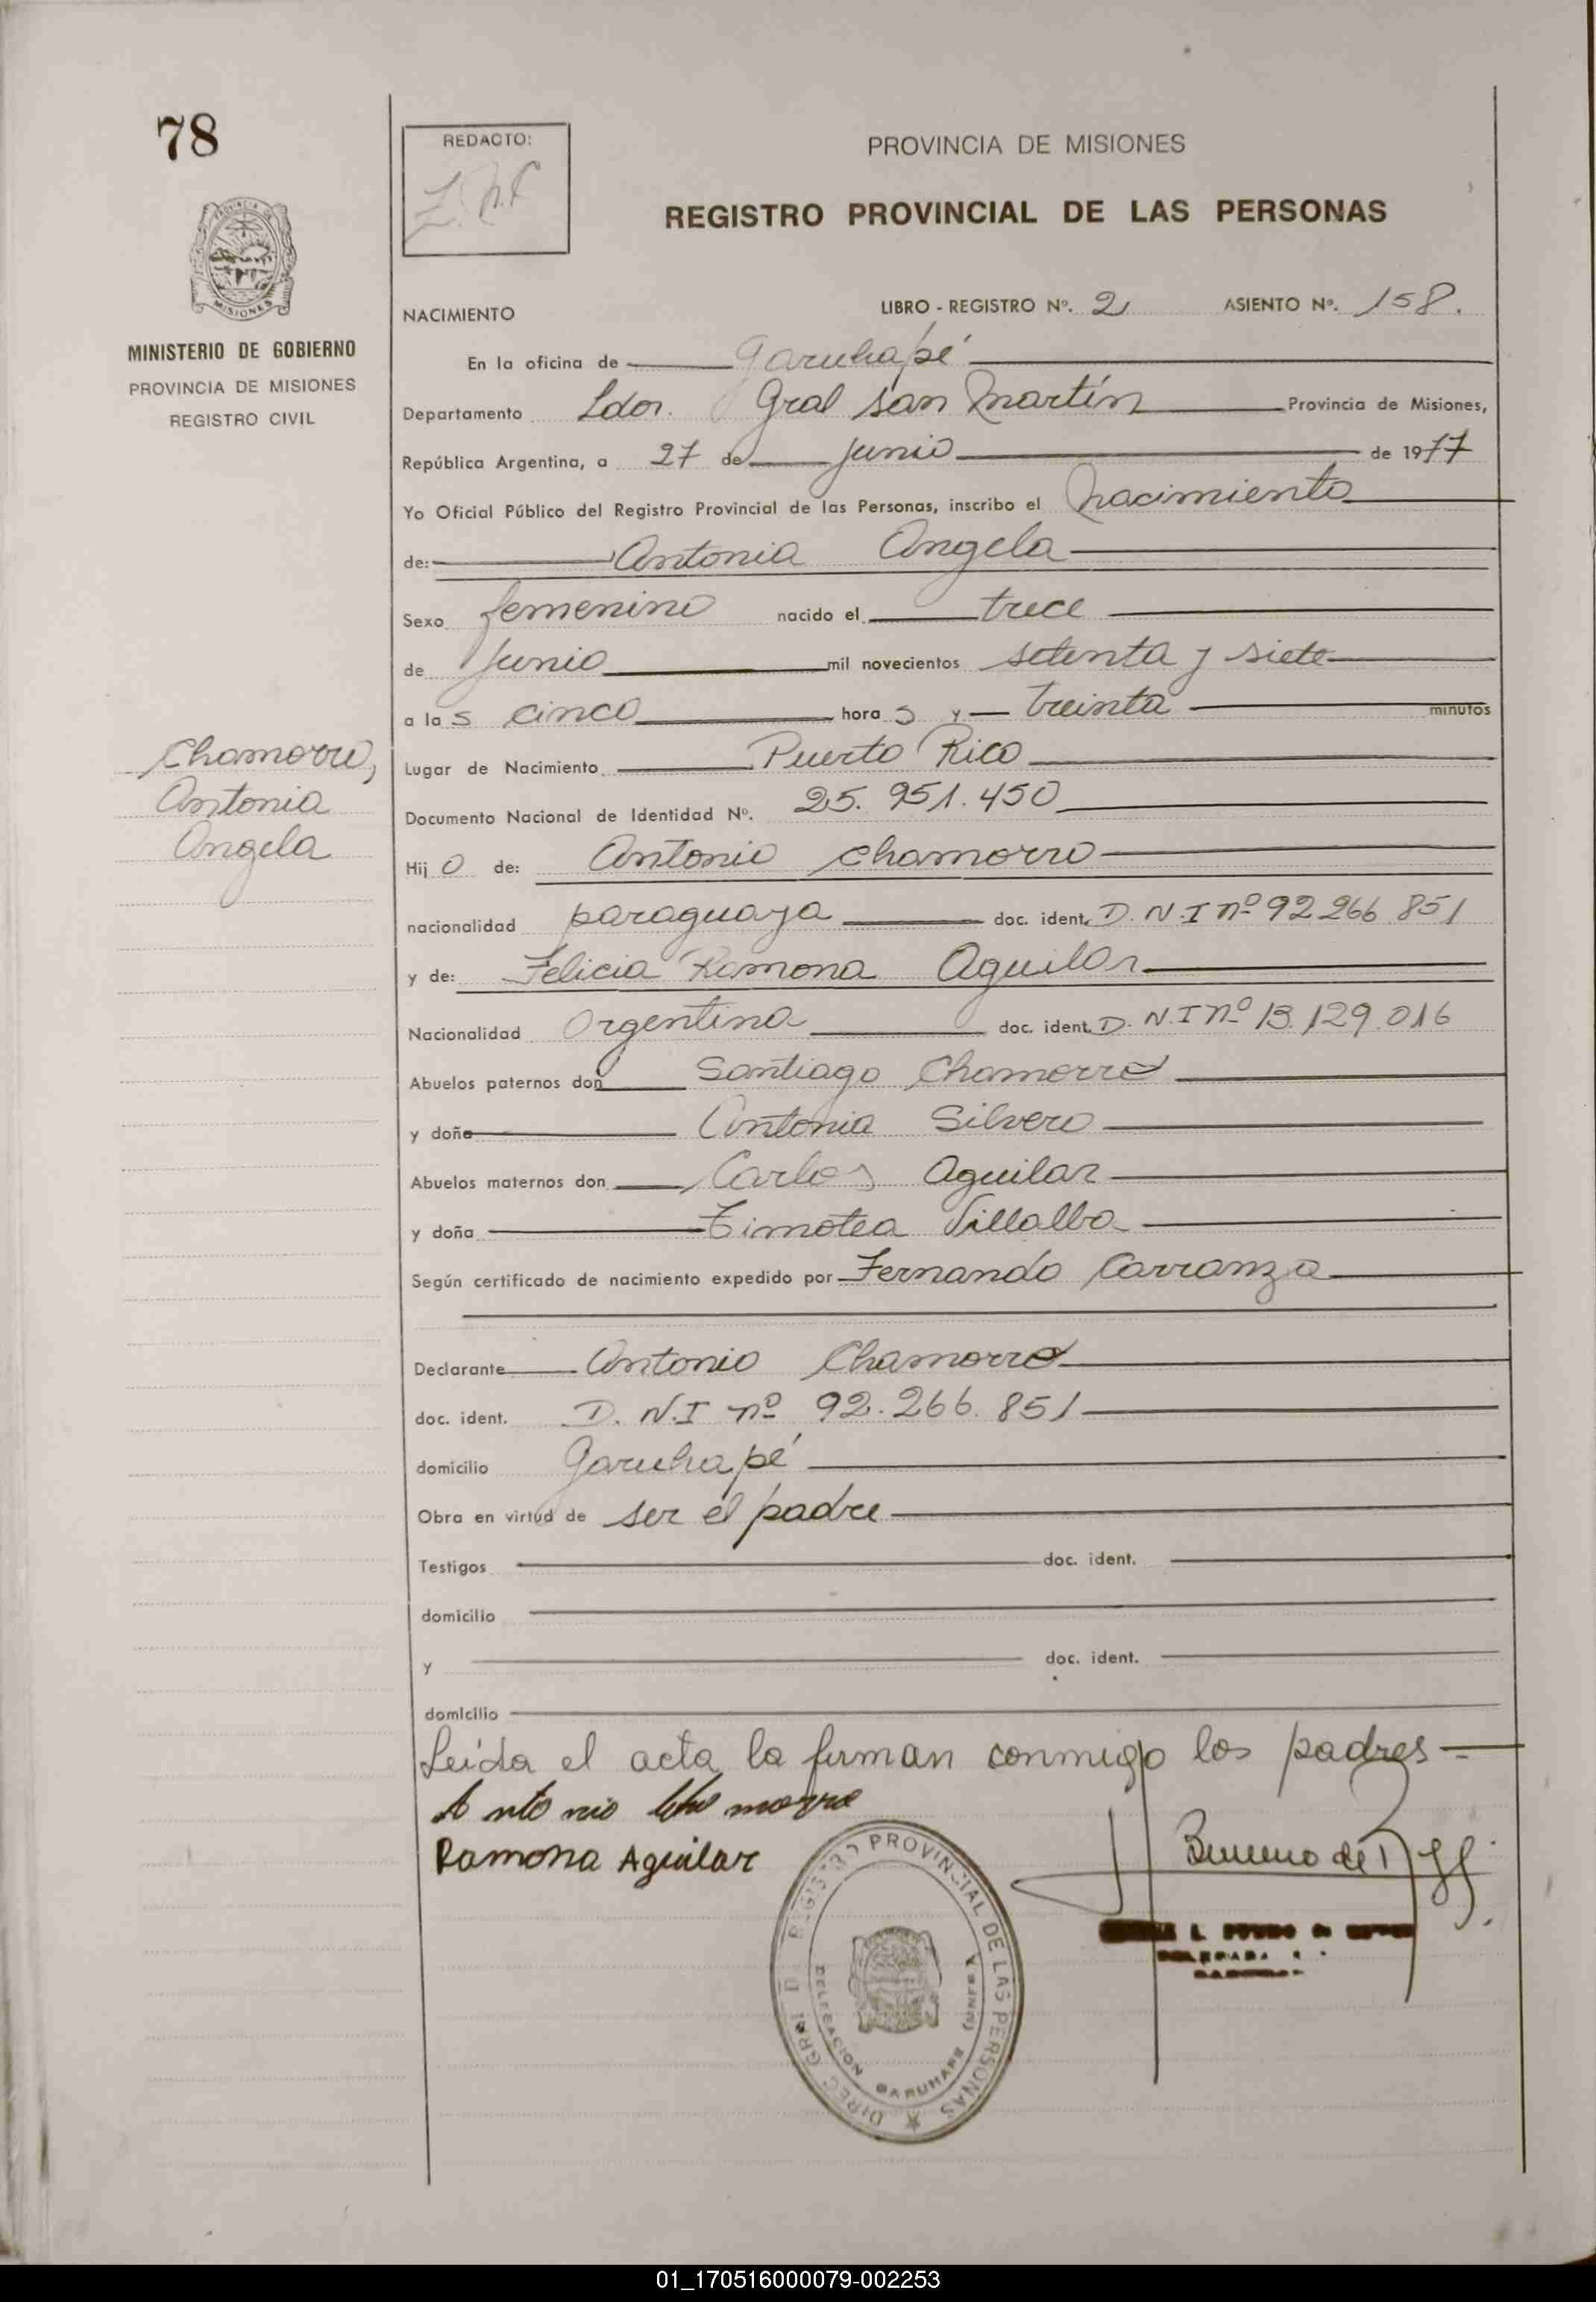 78
REDACTO:
PROVINCIA DE MISIONES
REGISTRO PROVINCIAL DE LAS PERSONAS
MINISTERIO DE GOBIERNO
PROVINCIA DE MISIONES
REGISTRO CIVIL
NACIMIENTO LIBRO - REGISTRO Nº. 2 ASIENTO Nº. 158.
En la oficina de Garuhapé
Departamento Ldor. Gral San Martín Provincia de Misiones,
República Argentina, a 27 de Junio de 1977
Yo Oficial Público del Registro Provincial de las Personas, inscribo el nacimiento
de: Antonia Angela
Sexo femenino nacido el trece
de Junio mil novecientos setenta y siete
a las cinco horas y treinta minutos
Chamorro,
Antonia
Angela
Lugar de Nacimiento Puerto Rico
Documento Nacional de Identidad Nº. 25.951.450
Hijo de: Antonio Chamorro
nacionalidad paraguaya doc. ident. D.N.I nº 92 266 851
y de: Felicia Ramona Aguilar
Nacionalidad Argentina doc. ident. D.N.I nº 13.129.016
Abuelos paternos don Santiago Chamorro
y doña Antonia Silvero
Abuelos maternos don Carlos Aguilar
y doña Timotea Villalba
Según certificado de nacimiento expedido por Fernando Carranza
Declarante Antonio Chamorro
doc. ident. D.N.I nº 92.266.851
domicilio Garuhapé
Obra en virtud de ser el padre
Testigos doc. ident.
domicilio
y doc. ident.
domicilio
Leida el acta la firman conmigo los padres
Antonio Chamorro
Ramona Aguilar
DIREC. GRAL DEL REGISTRO PROVINCIAL DE LAS PERSONAS
DELEGACION GARUHAPE (MNES)
01_170516000079-002253